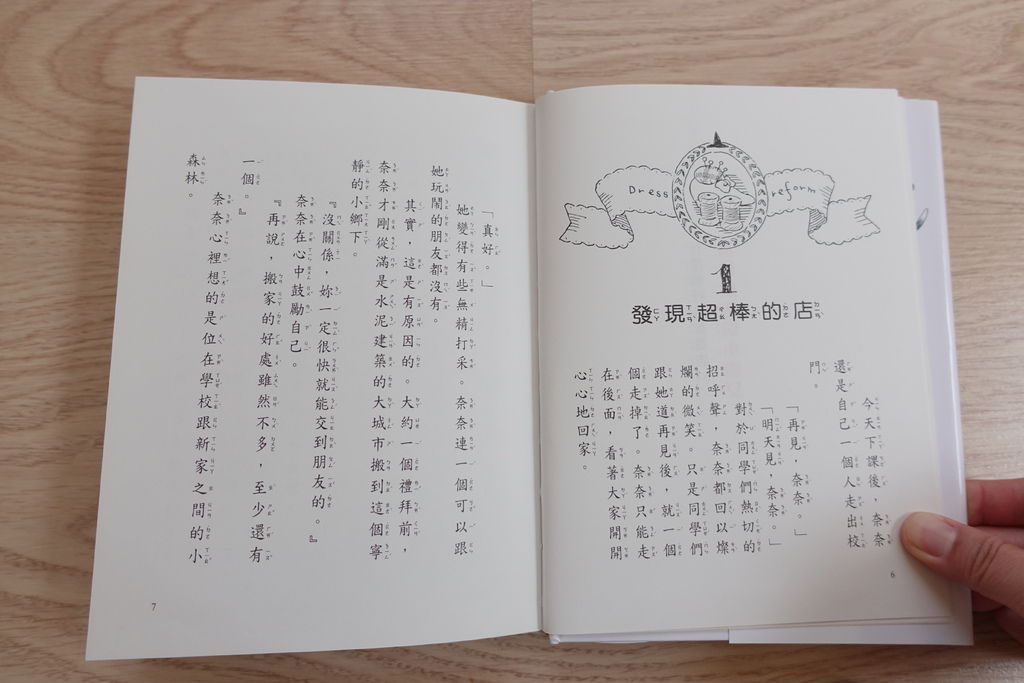 Dress reform
1
發現超棒的店
今天下課後，奈奈
還是自己一個人走出校
門。
「再見，奈奈。」
「明天見，奈奈。」
對於同學們熱切的
招呼聲，奈奈都回以燦
爛的微笑。只是同學們
跟她道再見後，就一個
個走掉了。奈奈只能走
在後面，看著大家開開
心心地回家。
6
「真好。」
她變得有些無精打采。奈奈連一個可以跟
她玩鬧的朋友都沒有。
其實，這是有原因的。大約一個禮拜前，
奈奈才剛從滿是水泥建築的大城市搬到這個寧
靜的小鄉下。
『沒關係，妳一定很快就能交到朋友的。』
奈奈在心中鼓勵自己。
『再說，搬家的好處雖然不多，至少還有
一個。』
奈奈心裡想的是位在學校跟新家之間的小
森林。
7